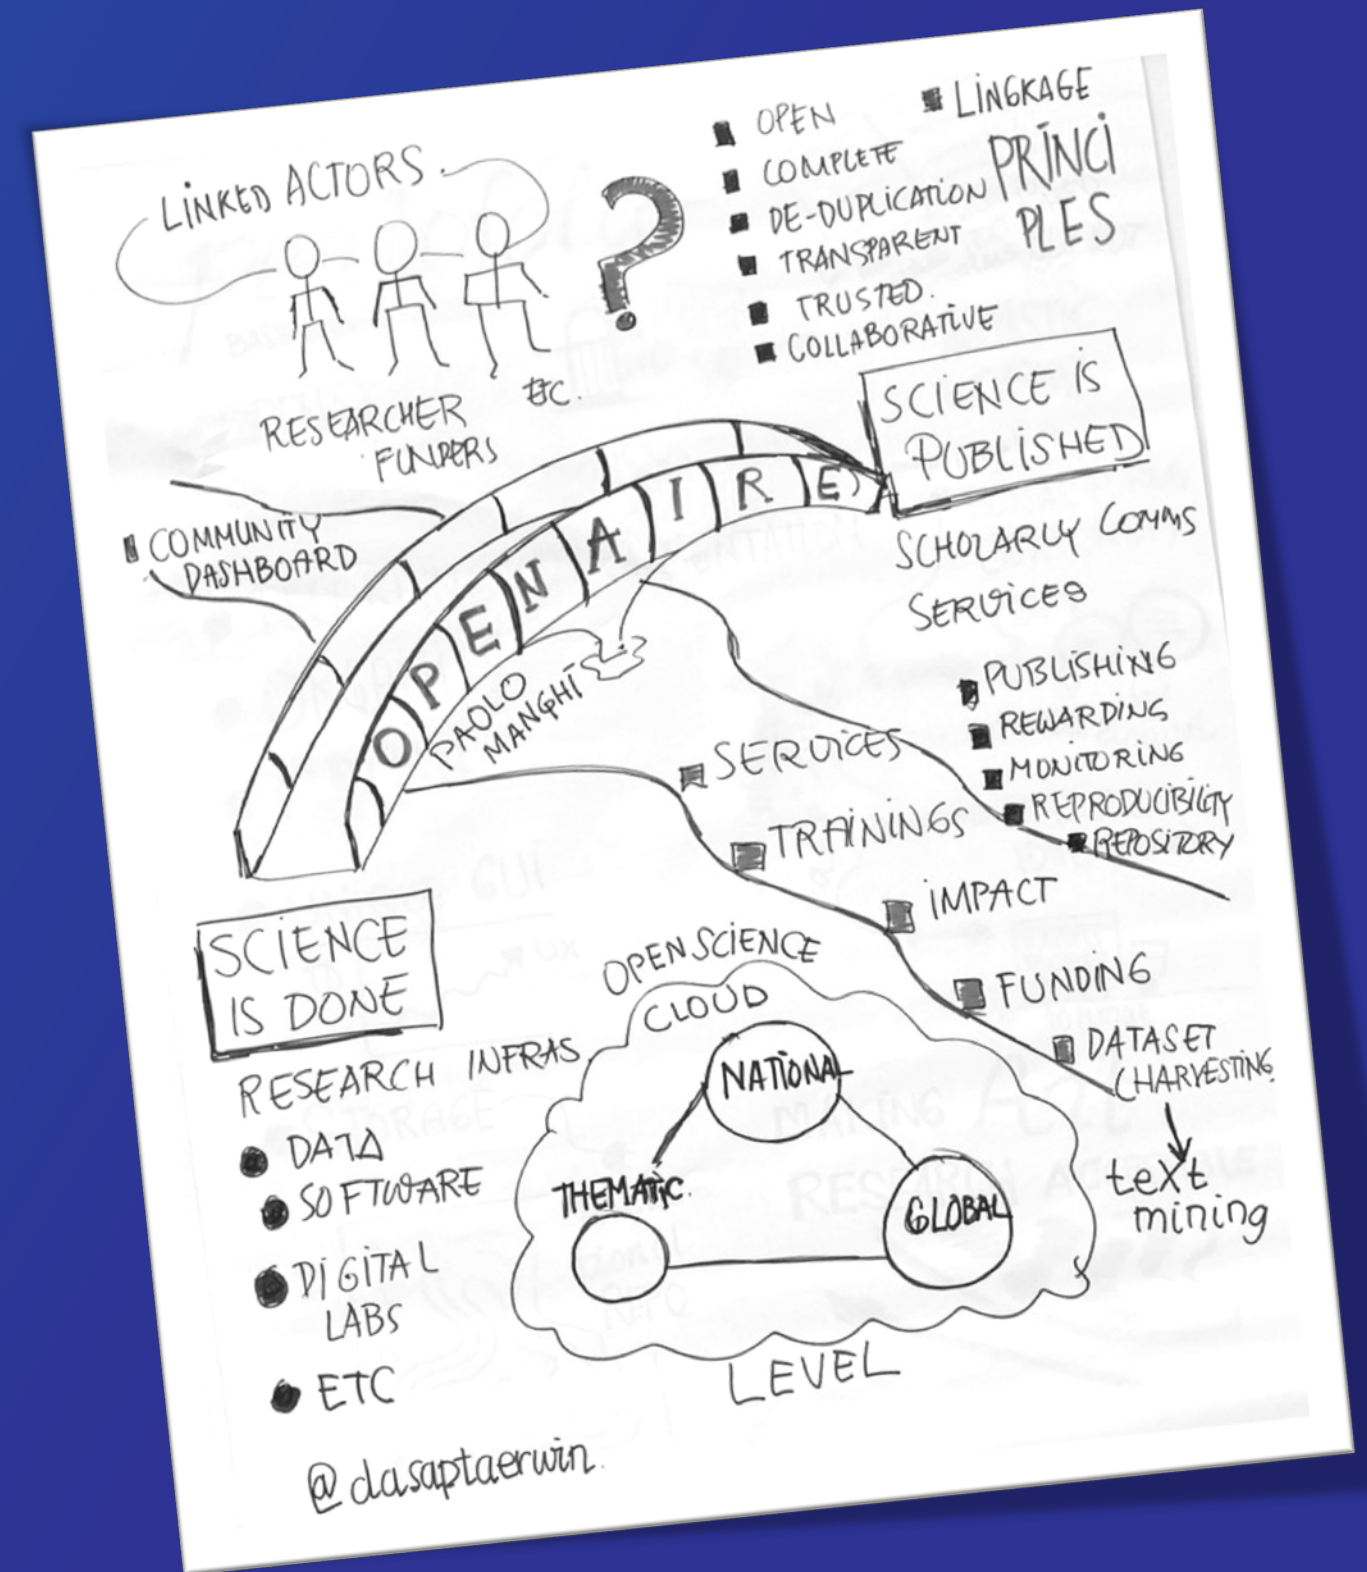 LINKED ACTORS
RESEARCHER
FUNDERS
ETC.
OPEN
COMPLETE
DE-DUPLICATION
TRANSPARENT
TRUSTED.
COLLABORATIVE
LINGKAGE
PRINCI
PLES
COMMUNITY
DASHBOARD
OPENAIRE
PAOLO
MANGHI
SCIENCE IS
PUBLISHED
SCHOLARLY COMMS
SERVICES
PUBLISHING
REWARDING
MONITORING
REPRODUCIBILITY
REPOSITORY
SERVICES
TRAININGS
IMPACT
FUNDING
DATASET
HARVESTING.
text
mining
SCIENCE
IS DONE
RESEARCH INFRAS
DATA
SOFTWARE
DIGITAL
LABS
ETC
OPEN SCIENCE
CLOUD
NATIONAL
THEMATIC.
GLOBAL
LEVEL
@dasaptaerwin.